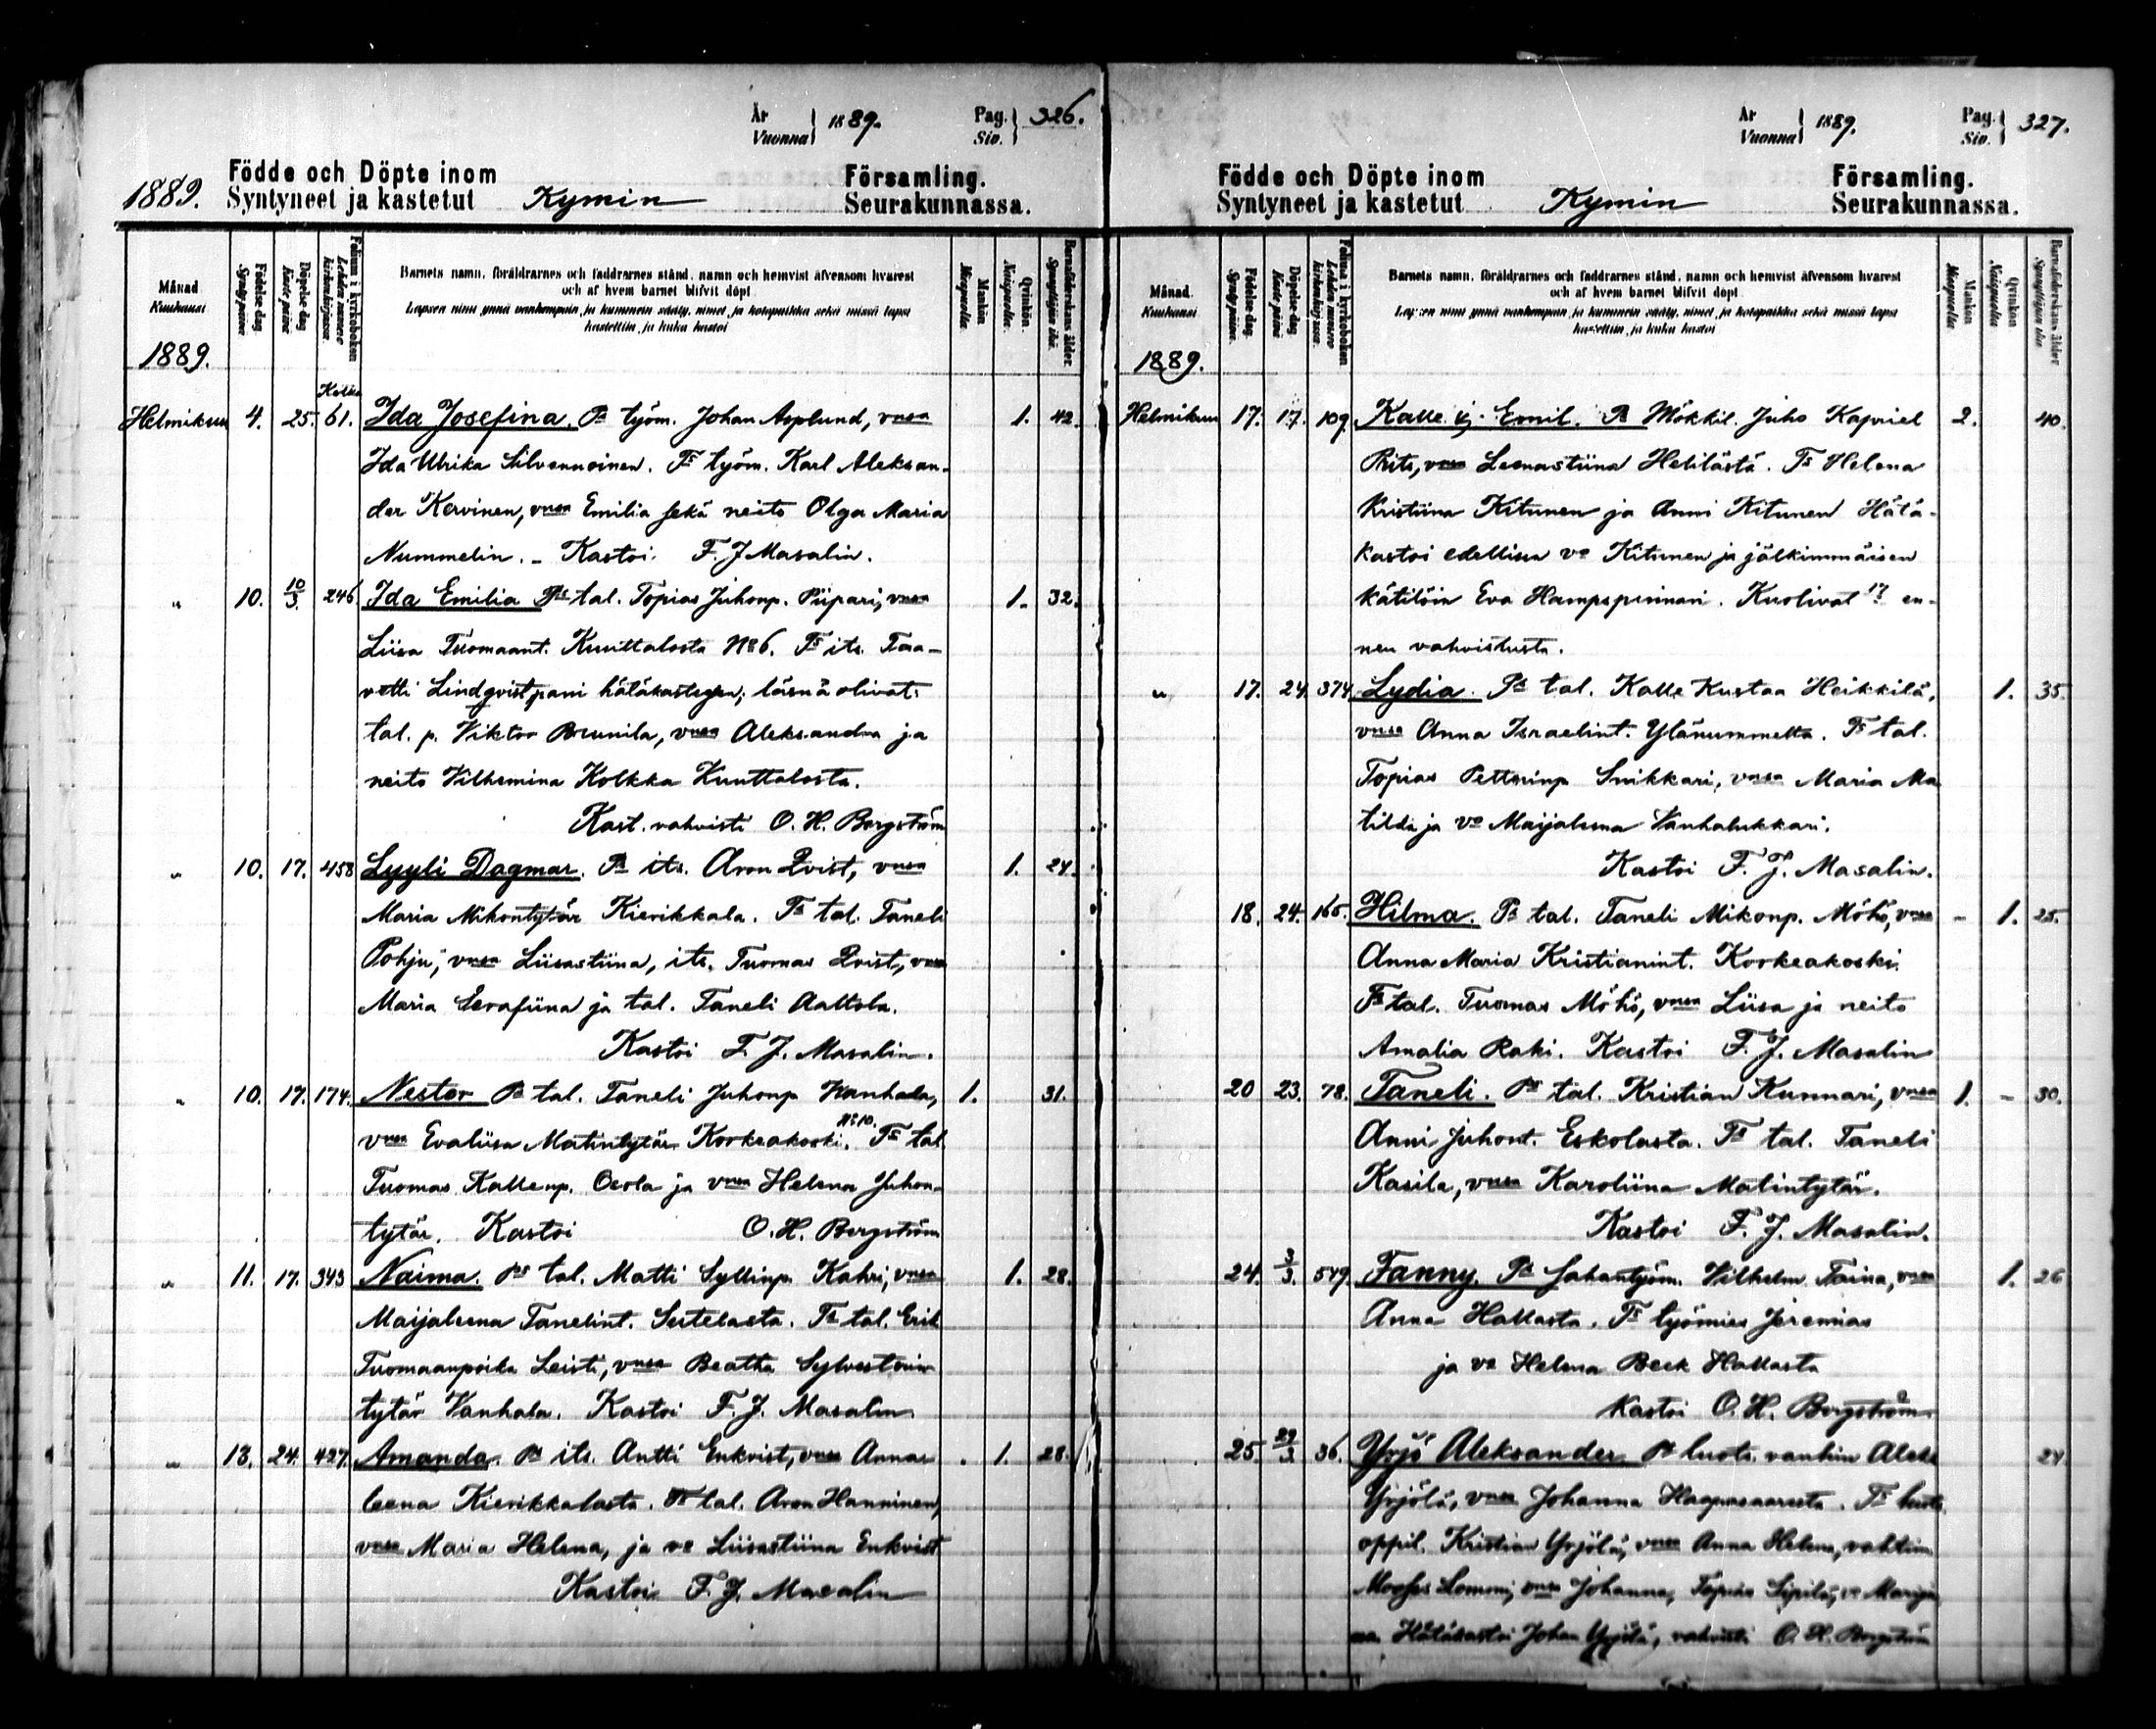 År
Vuonna } 1889.
Pag.
Siv. } 326.
Födde och Döpte inom Församling.
1889. Syntyneet ja kastetut Kymin Seurakunnassa.
Månad
Kuukausi
1889.
Födelse-dag
Syntypäivä
Döpelse-dag
Kaste päivä
Folium i kyrkoboken
Lehden numero kirkonkirjassa
Barnets namn, föräldrarnes och faddrarnes stånd, namn och hemvist äfvensom hvarest
och af hvem barnet blifvit döpt
Lapsen nimi ynnä vanhempain ja kummein sääty, nimet ja kotopaikka sekä missä lapsi
kastettiin ja kuka kastoi
Mankön
Miespuolta
Qvinkön
Naispuolta
Barnaföderskans ålder
Synnyttäjän ikä
Helmikuu 4. 25. 61. Ida Josefina. Vt työm. Johan Asplund, vmsa 1. 42.
Ida Ulrika Silvennoinen. Tt työm. Karl Aleksan-
der Kervinen, vmsa Emilia sekä neito Olga Maria
Nummelin. – Kastoi F. J. Masalin.
" 10. 10/3. 246 Ida Emilia Vt tal. Topias Juhonp. Piipari, vmsa 1. 32.
Liisa Tuomaant. Kuuttalosta No 6. Tt its. Taa-
vetti Lindqvist pani hätäkasteesen; läsnä olivat:
tal. p. Viktor Brunila, vmsa Aleksandra ja
neito Vilhemina Kolkka Kuuttalosta.
Kast. vahvisti O. H. Bergström
" 10. 17. 458 Lyyli Dagmar. Vt its. Aron Qvist, vmsa 1. 24.
Maria Mikontytär Kierikkala. Tt tal. Taneli
Pohju, vmsa Liisastiina, its. Tuomas Qvist, vmsa
Maria Serafiina ja tal. Taneli Aaltola.
Kastoi F. J. Masalin.
" 10. 17. 174. Nestor Vt tal. Taneli Juhonp Vanhala, 1. 31.
vmsa Evaliisa Matintytär Korkeakoski No 10. Tt tal.
Tuomas Kallenp. Oerola ja vmsa Helena Juhon-
tytär. Kastoi O. H. Bergström
" 11. 17. 343 Naima. Vt tal. Matti Syllinp. Kahri, vmsa 1. 28.
Maijaleena Tanelint. Sutelasta. Tt tal. Erik
Tuomaanpoika Leisti, vmsa Beatha Sylvesterin
tytär Vanhala. Kastoi F. J. Masalin
" 13. 24. 427. Amanda. Vt its. Antti Enkvist, vmsa Anna- 1. 28.
leena Kierikkalasta. Tt tal. Aron Hanninen,
vmsa Maria Helena, ja vo Liisastiina Enkvist
Kastoi F. J. Masalin
År
Vuonna } 1889.
Pag.
Siv. } 327.
Födde och Döpte inom Församling.
Syntyneet ja kastetut Kymin Seurakunnassa.
Månad.
Kuukausi
1889.
Födelse-dag
Syntypäivä
Döpelse-dag
Kaste päivä
Folium i kyrkoboken
Lehden numero kirkonkirjassa
Barnets namn, föräldrarnes och faddrarnes stånd, namn och hemvist äfvensom hvarest
och af hvem barnet blifvit döpt
Lapsen nimi ynnä vanhempain ja kummein sääty, nimet ja kotopaikka sekä missä lapsi
kastettiin ja kuka kastoi
Mankön
Miespuolta
Qvinkön
Naispuolta
Barnaföderskans ålder
Synnyttäjän ikä
Helmikuu 17. 17. 109. Kalle ja Emil. Vt Mökkil. Juho Kapriel 2. 40.
Rits, vmsa Leenastiina Helilästä. Tt Helena
Kristiina Kitunen ja Anni Kitunen Hätä-
kastoi edellisen vo Kitunen ja jälkimmäisen
kätilöin Eva Hampspinnari. Kuolivat 17 en-
nen vahvistusta.
" 17. 24. 374. Lydia. Vt tal. Kalle Kustaa Heikkilä, 1. 35.
vmsa Anna Israelint. Ylänummelta. Tt tal.
Topias Petterinp Snikkari, vmsa Maria Ma
tilda ja vo Maijaleena Vanhalukkari.
Kastoi F. J. Masalin.
18. 24. 165. Hilma. Vt tal. Taneli Mikonp. Möhö, vmsa – 1. 25.
Anna Maria Kristianint. Korkeakoski.
Tt tal. Tuomas Möhö, vmsa Liisa ja neito
Amalia Raki. Kastoi F. J. Masalin
20 23. 78. Taneli. Vt tal. Kristian Kunnari, vmsa 1. – 30.
Anni Juhont. Eskolasta. Tt tal. Taneli
Kasila, vmsa Karoliina Matintytär.
Kastoi F. J. Masalin.
24. 3/3. 549. Fanny. Vt Sahantyöm. Vilhelm Taina, vmsa 1. 26
Anna Hallasta. Tt työmies Jeremias
ja vo Helena Beck Hallasta
Kastoi O. H. Bergström
25 29/3. 36. Yrjö Aleksander Vt luots. vanhin Aleks 24
Yrjölä, vmsa Johanna Haapasaaresta. Tt luots.
oppil. Kristian Yrjölä, vmsa Anna Helena, vahtim
Mooses Lommi, vmsa Johanna, Topias Sipilä, vo Marija
na. Hätäkastoi Johan Yrjölä, vahvisti O. H. Bergström